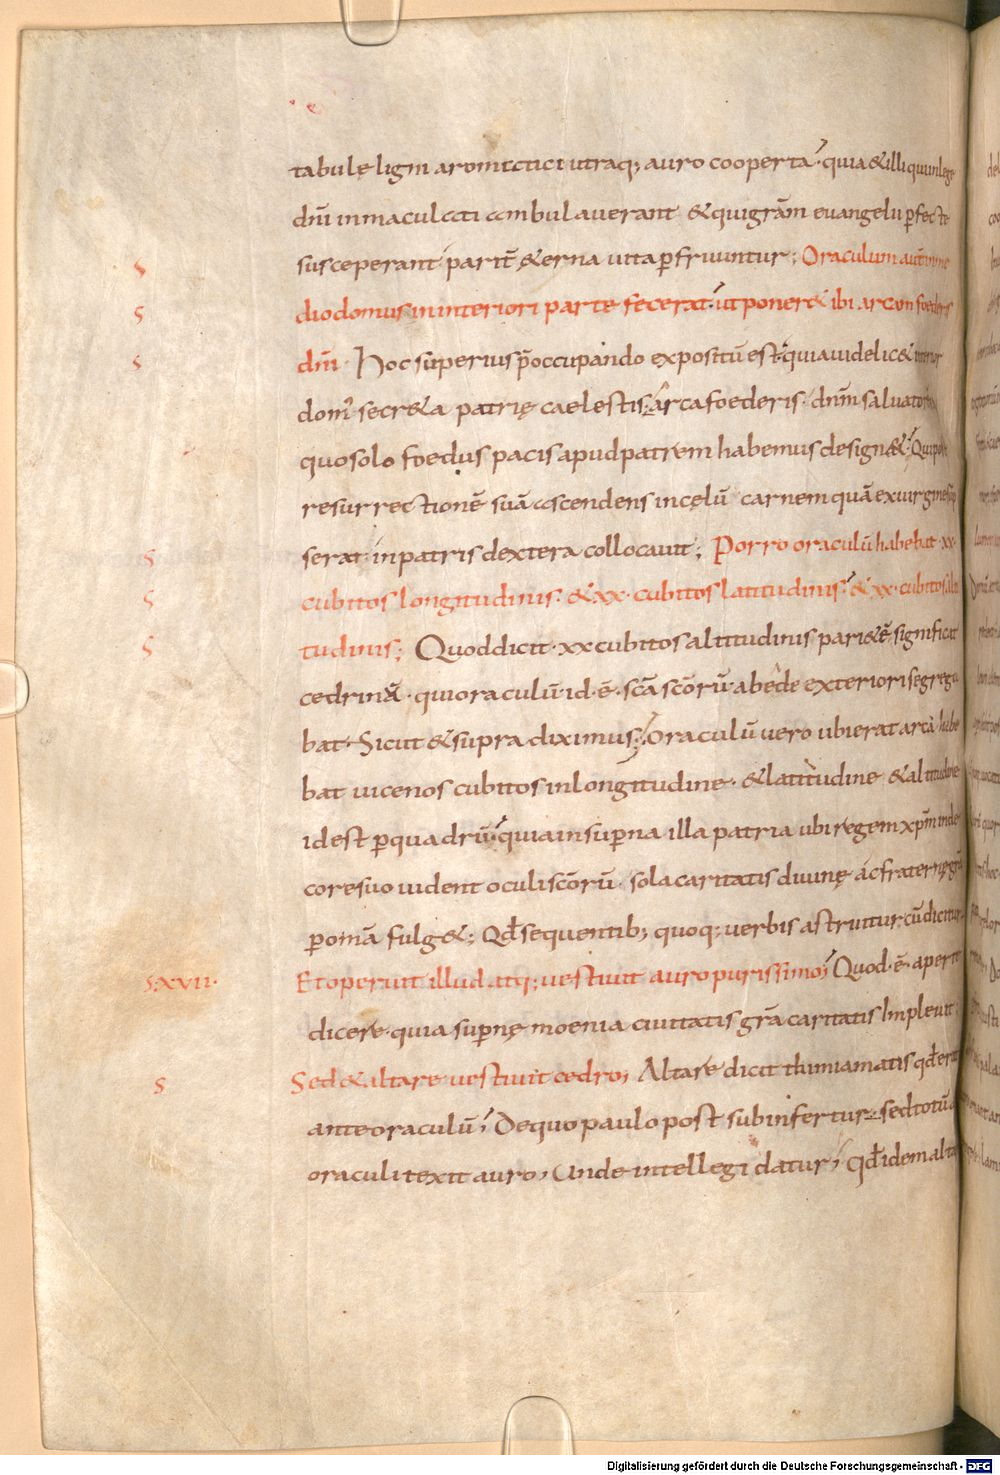 tabulę ligni aromatici utraq; auro cooperta. quia & illi qui in lege
dn̄i inmaculati ambulauerant & qui grām euangelii ꝑfecte
susceperant parit̄ &erna uita ꝑfruuntur; Oraculum aut̄ in me
S
S
dio domus in interiori parte fecerat. ut poner& ibi arcam foederis
S
dn̄i. Hoc superius p̄occupando expositū est. quia uidelic& interior
dom' secr&a patrię caelestis. arca foederis. dnm̄ saluatorem
quo solo foedus pacis apud patrem habemus design&. Qui post
resurrectionē suā ascendens in cęlū carnem quā ex uirgine sup
serat. in patris dextera collocauit; Porro oraculū habebat. xx.
S
S
cubitos longitudinis. & xx. cubitos latitudinis. & xx. cubitos alti
S
tudinis; Quod dicit. xx cubitos altitudinis pari&ē significat
cedrinā. qui oraculū id. ē. sc̄a sc̄orū ab ęde exteriori segrega
bat. Sicut & supra diximus; Oraculū uero ubi erat arca habe
bat uicenos cubitos in longitudine. & latitudine & altitudine
id est ꝑ quadrū. quia in suꝑna illa patria ubi regem xp̄m in de
core suo uident oculi sc̄orū. sola caritatis diuinę ac fraternę grā
ꝑ omā fulg&; Qd̄ sequentib; quoq; uerbis astruitur. cū dicitur.
S. XXVII.
Et operuit illud atq; uestiuit auro purissimo; Quod. ē. aperte
dicere. quia suꝑnę moenia ciuitatis grā caritatis Impleuit;
S
Sed & altare uestiuit cedro; Altare dicit thimiamatis qd̄ erat
ante oraculū; De quo paulo post subinfertur. sed totū a
oraculi texit auro; Unde intellegi datur; qd̄ idem alta
Digitalisierung gefördert durch die Deutsche Forschungsgemeinschaft - DFG